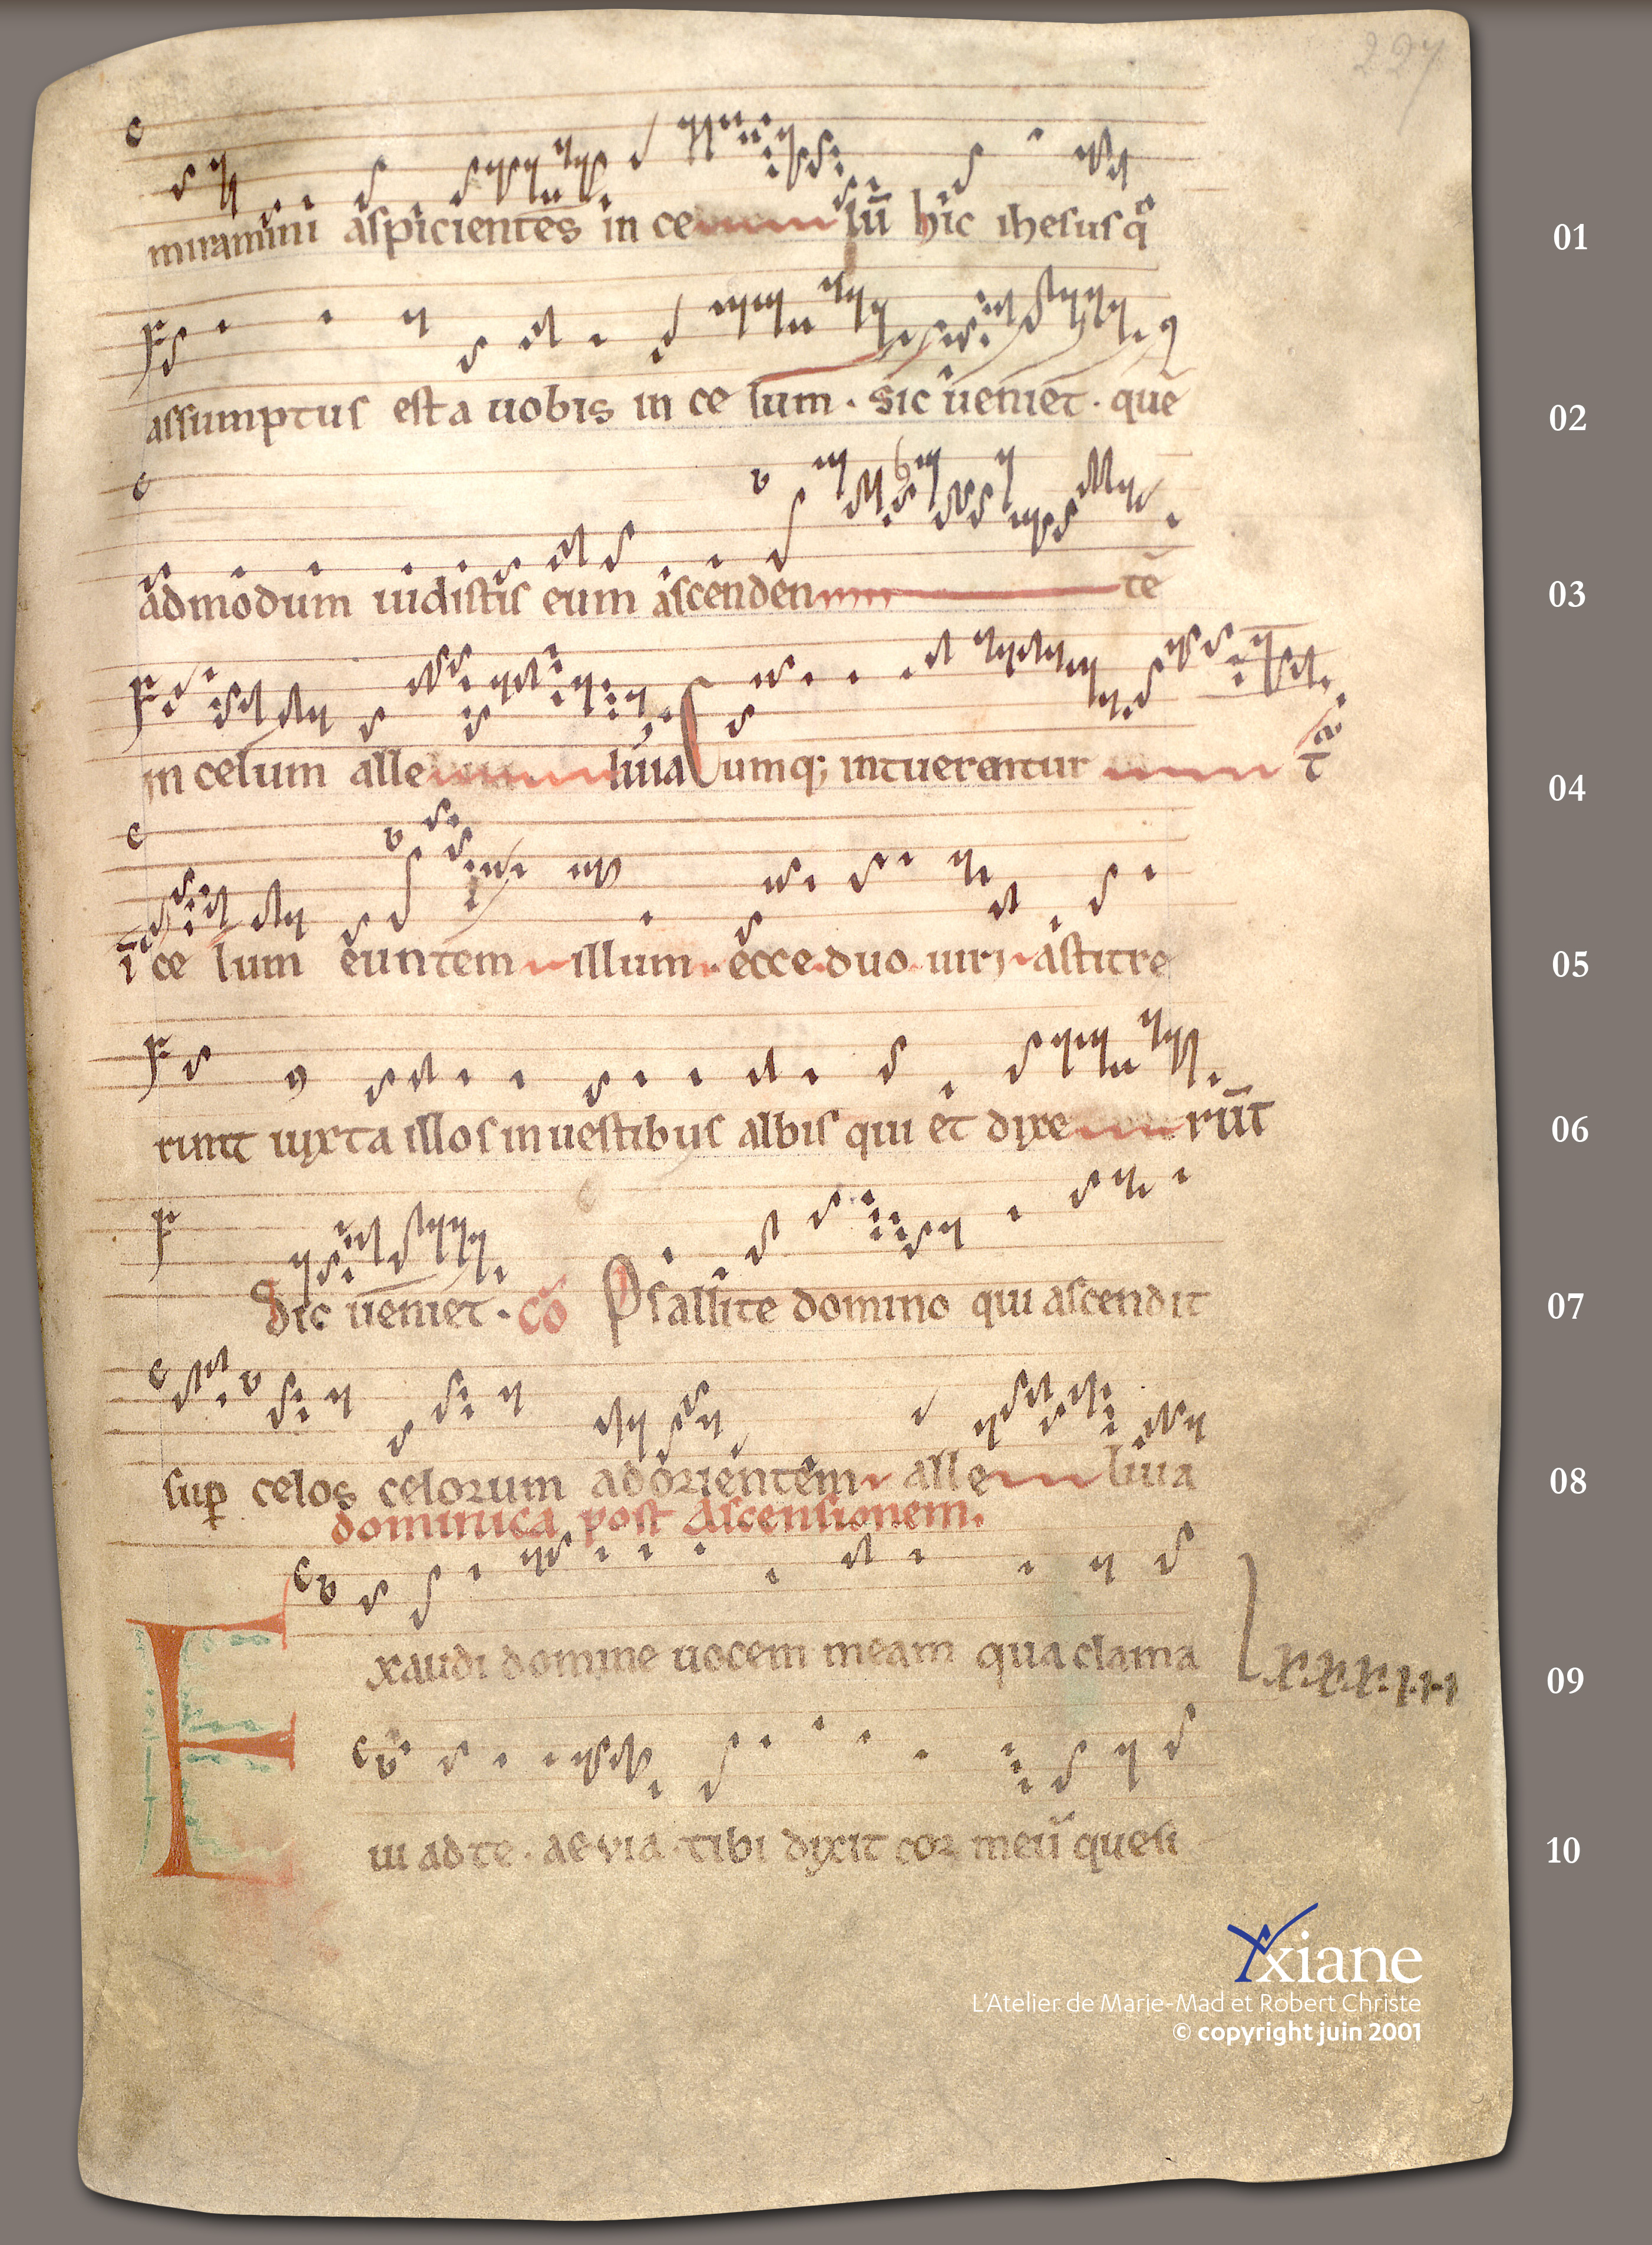 227
miramini aspicientes in celū hic ihesus q
01
assumptus est a uobis in celum · sic ueniet · quē
02
admodum uidistis eum ascendentē
03
in celum alleluia Cumq; intuerentur
04
ī ce lum euntem illum · ecce duo uiri astitre
05
runt iuxta illos in uestibus albis qui et dixerūt
06
Sic ueniet · Cō Psallite domino qui ascendit
07
sup celos celorum ad orientem alleluia
08
dominica post Ascensionem.
Exaudi domine uocem meam qua clama
09
.x.x.x.i.i.i
ui ad te · aevia · tibi dixit cor meū quesi
10
xiane
L'Atelier de Marie-Mad et Robert Christe
© copyright juin 2001